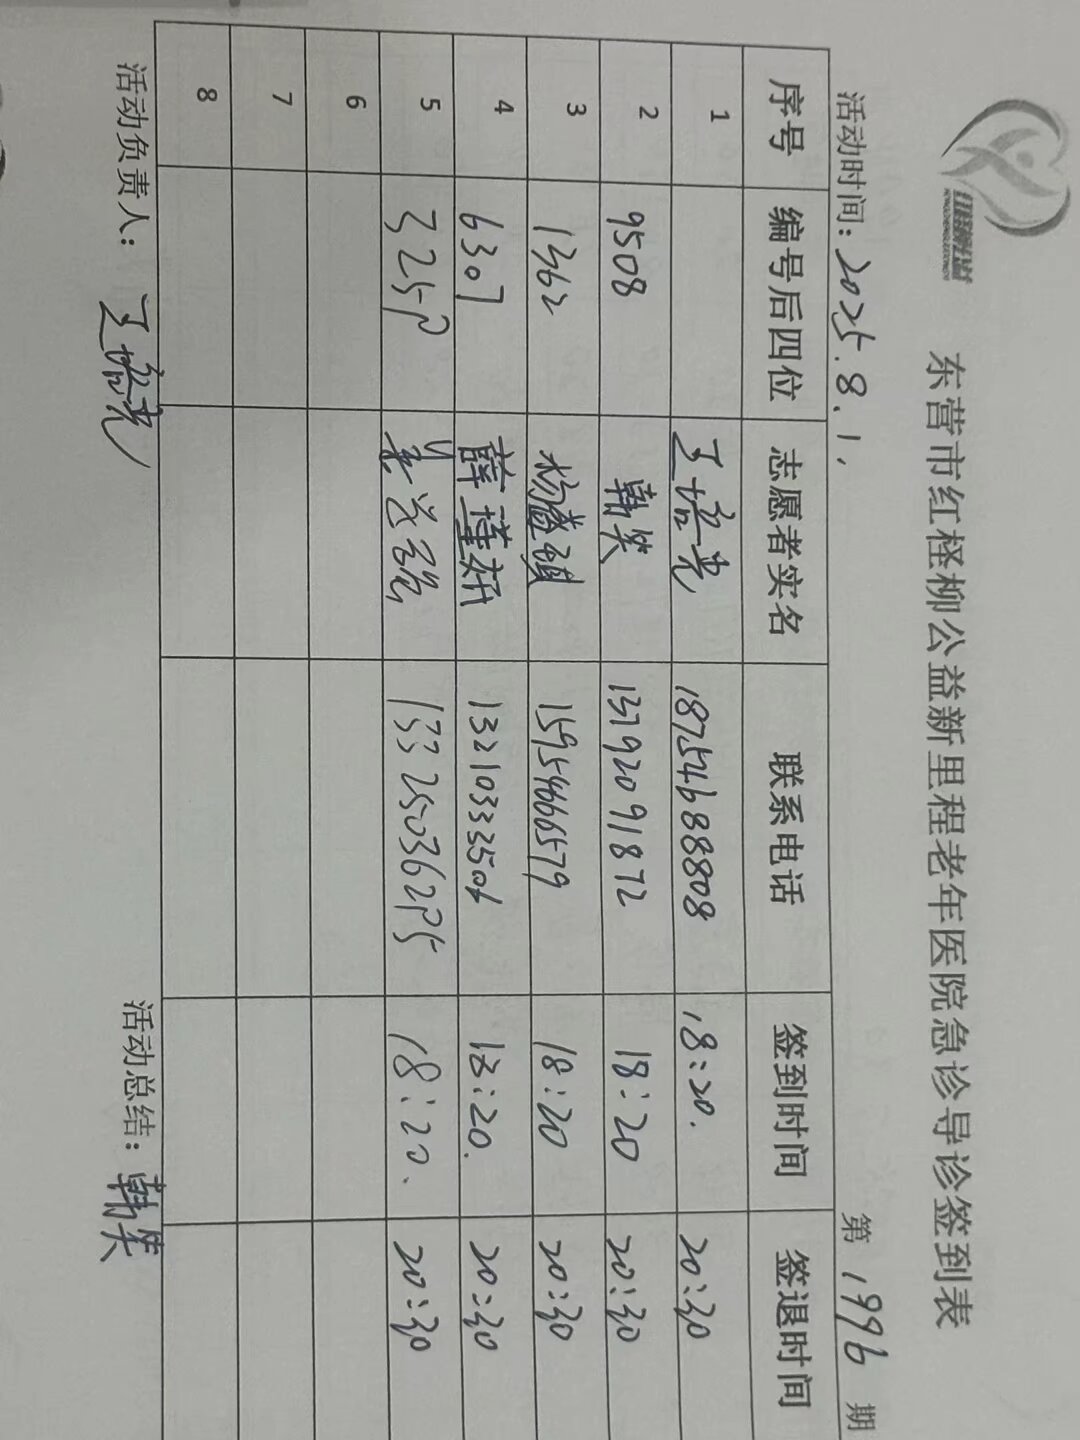 东营市红柽柳公益新里程老年医院急诊导诊签到表
活动时间: 2025.8.1. 第 1996 期
序号 编号后四位 志愿者实名 联系电话 签到时间 签退时间
1 18754688808 18:20. 20:30
2 9508 韩笑 13792091872 18:20 20:30
3 1362 15954666579 18:20 20:30
4 6307 薛瑾妍 1321033350 18:20. 20:30
5 325P 18:20. 20:30
6
7
8
活动负责人: 活动总结: 韩笑